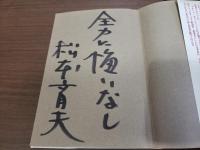 全力に悔いなし
松本育夫